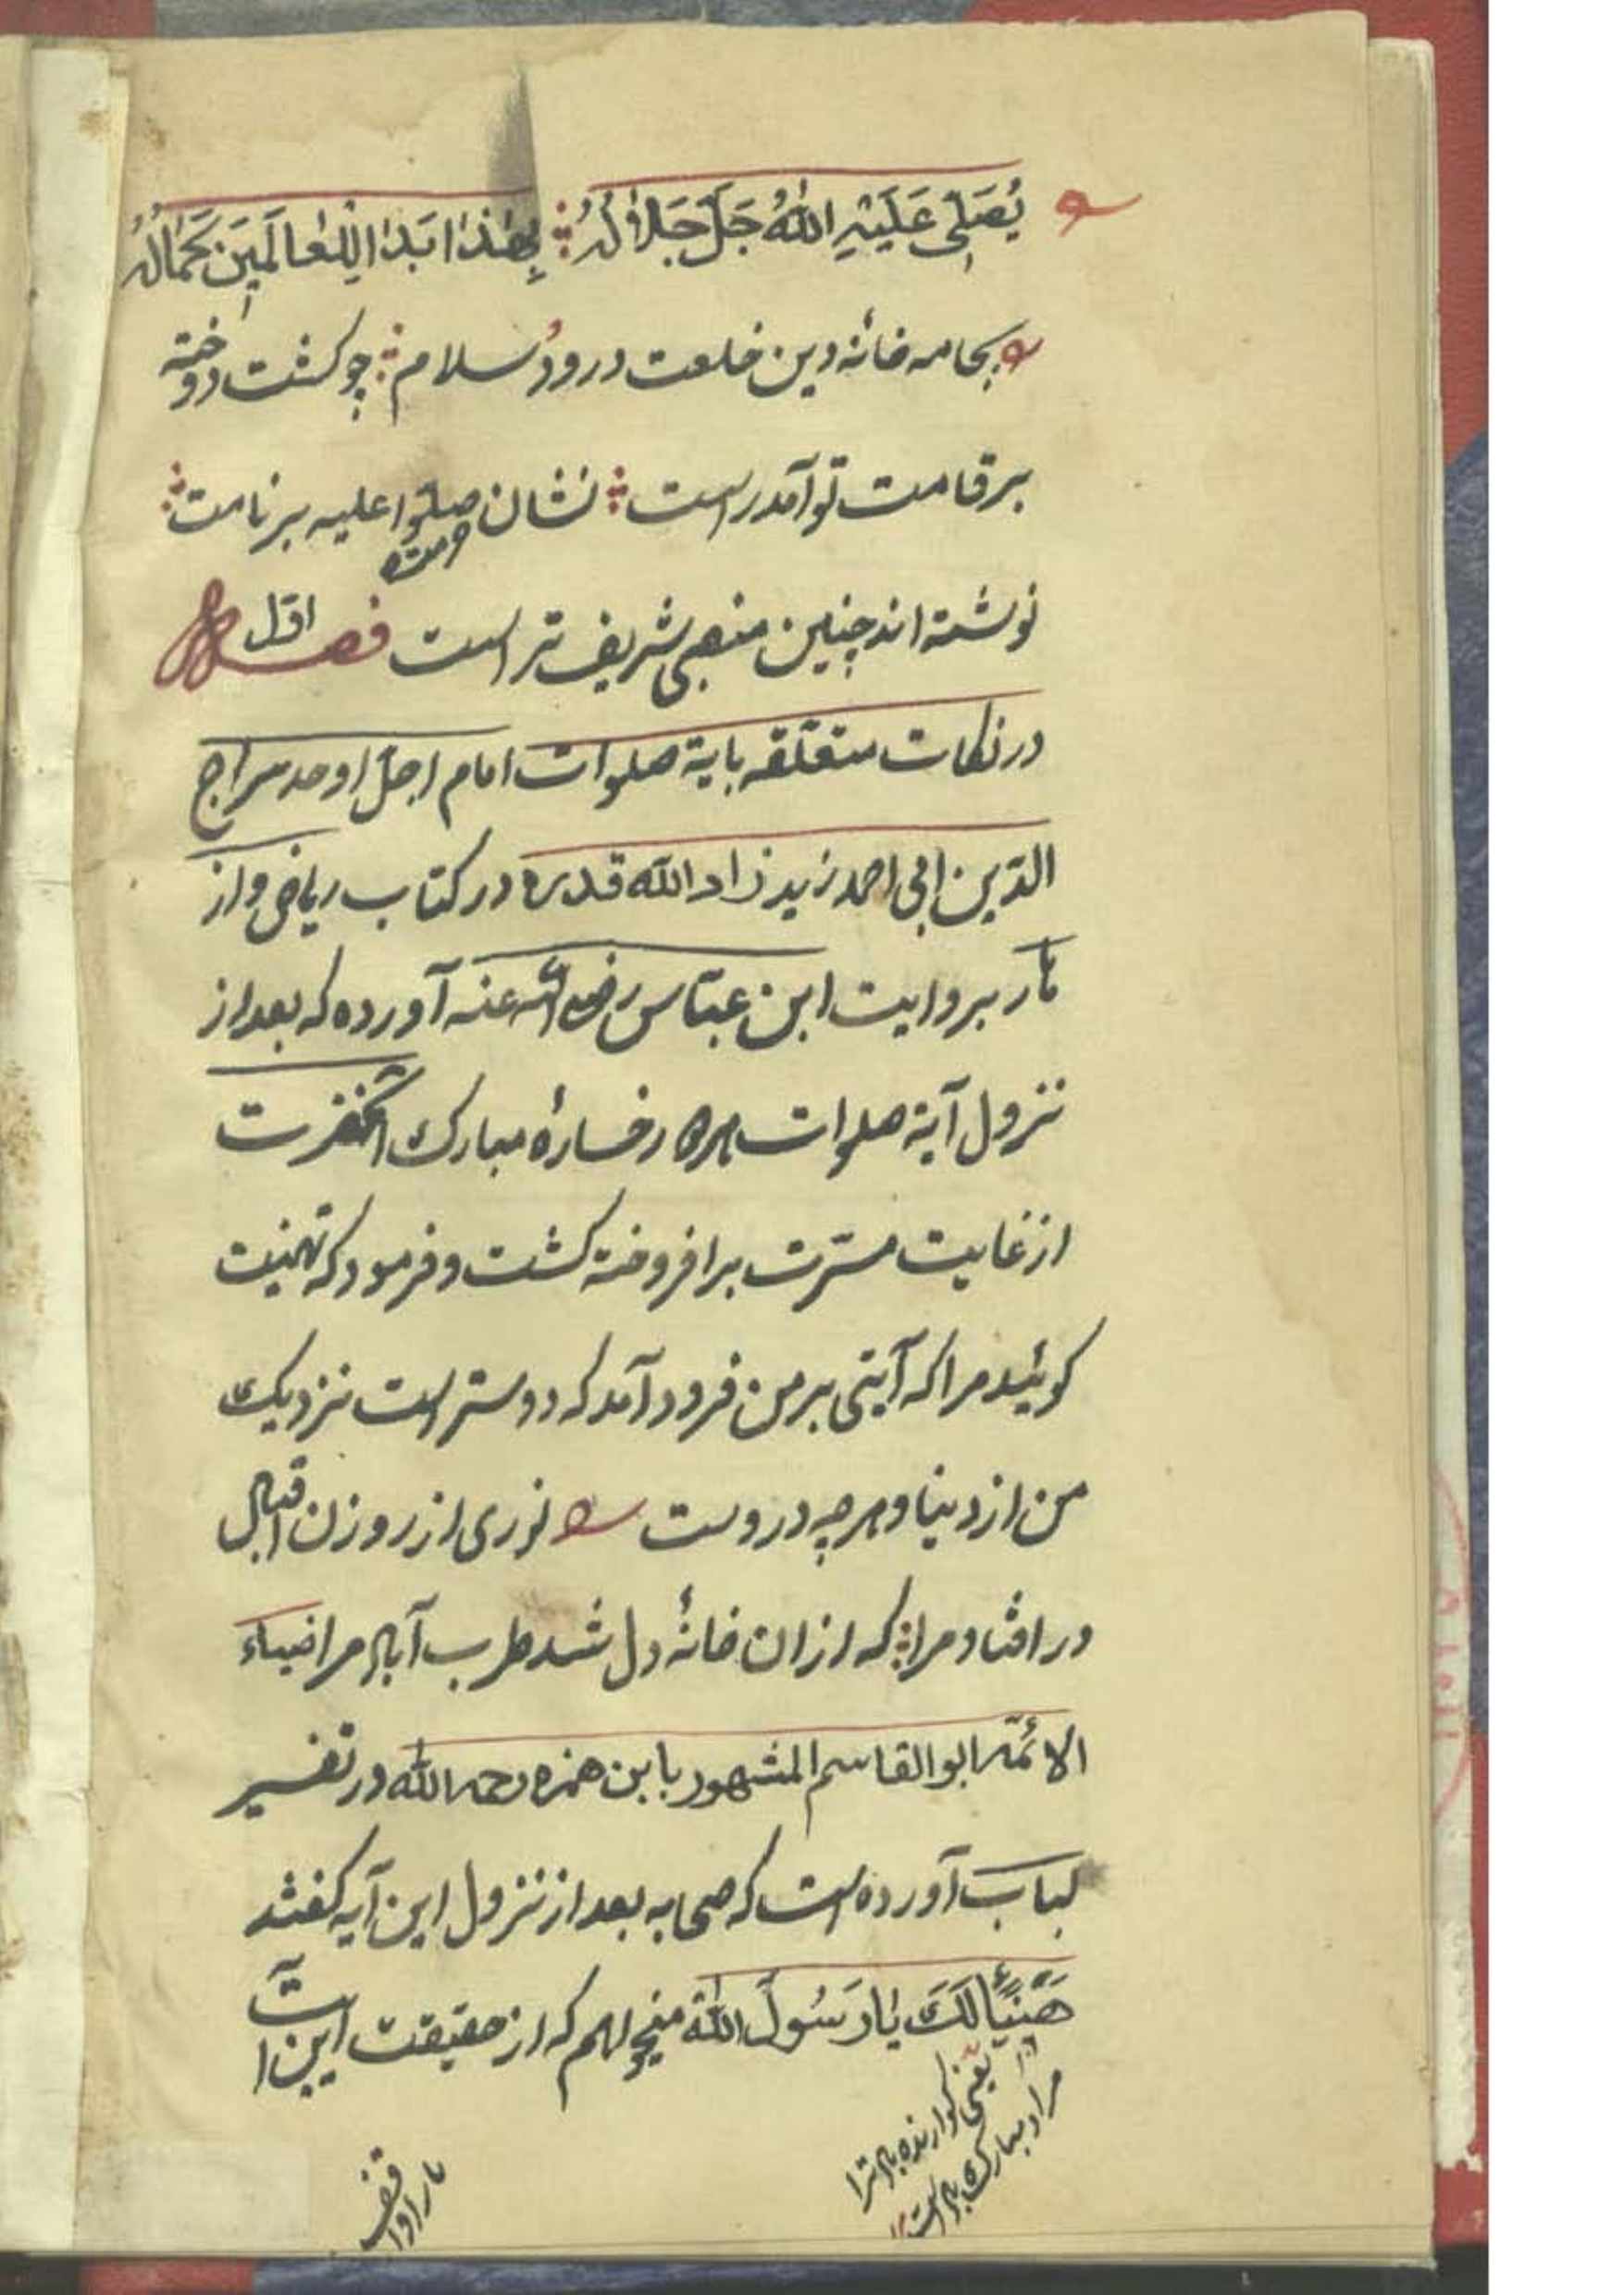 يُصَلِّي عَلَيْهِ اللهُ جَلَّ جَلَالُهُ بِهٰذَا بَدَا لِلْعَالَمِينَ جَمَالُهُ
بجامه خانۀ دین خلعت درود و سلام چو کشت دوخته
بر قامت تو آمد راست نشان صلّوا علیه بر نامت
نوشته اند چنین منصبی شریف تر است فصل اوّل
در نکات متعلّقه بایة صلوات امام اجلّ اوحد سراج
الدّین ابی احمد زید زاد الله قدره در کتاب ریاض واز
هار بروایت ابن عبّاس رضی الله عنه آورده که بعد از
نزول آیة صلوات هر دو رخسارۀ مبارک آنحضرت
از غایت مسرّت بر افروخته کشت و فرمود که تهنیت
کوئید مرا که آیتی بر من فرود آمد که دوستر است نزدیک
من از دنیا و هر چه دروست نوری از روزن اقبال
در افتاد مرا که ازان خانۀ دل شد طرب آباد مرا ضیاء
الائمّه ابو القاسم المشهور بابن حمزه رحمه الله در تفسیر
لباب آورده است که صحابه بعد از نزول این آیه کفتند
هَنِيئًا لَكَ يَا رَسُولَ اللهِ میخواهم که از حقیقت این آیت
یعنی کوارنده باد ترا
مراد مبارک باد است
مارا واقف